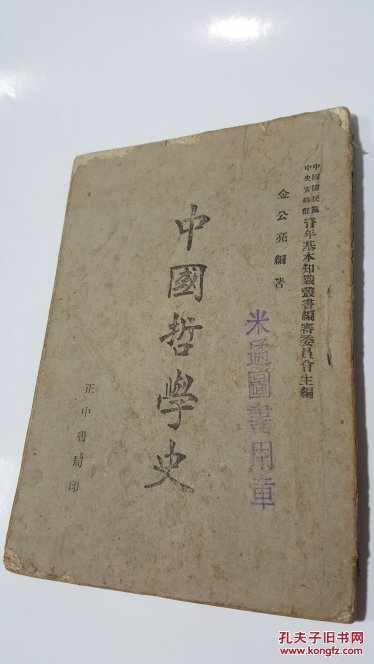 中國國民黨
中央宣傳部
青年基本知識叢書編審委員會主編
金公亮編著
中國哲學史
正中書局印
圖書用章
孔夫子旧书网
www.kongfz.com